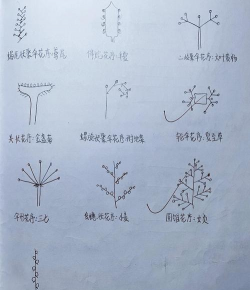 蝎尾状聚伞花序:
花序:
二歧聚伞花序:大叶黄杨
头状花序:金盏菊
螺旋状聚伞花序:附地菜
轮伞花序:夏至草
伞形花序:三七
复穗状花序:小麦
圆锥花序:女贞